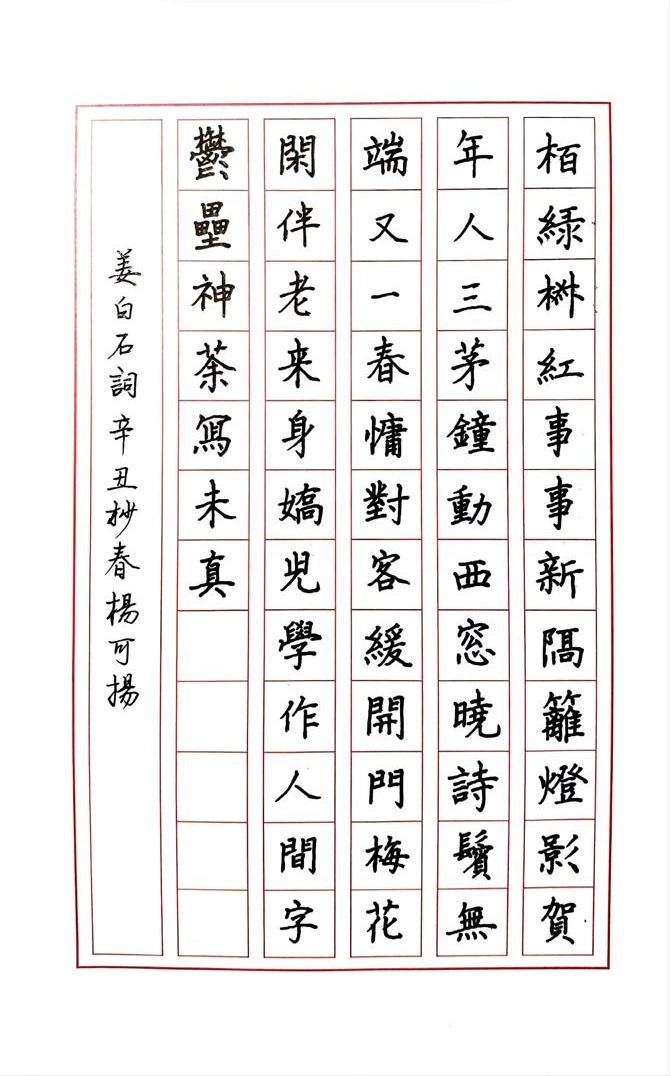 栢綠椒紅事事新隔籬燈影賀
年人三茅鐘動西窓曉詩鬢無
端又一春慵對客緩開門梅花
閑伴老来身嬌児學作人間字
鬱壘神荼寫未真
姜白石詞辛丑抄春楊可揚